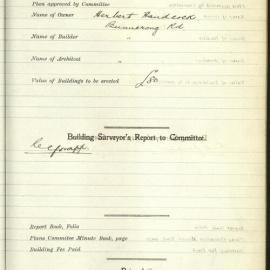 Plan approved by Committee
Name of Owner Herbert Handcock
Bunnerong Rd
Name of Builder "
Name of Architect "
Value of Buildings to be erected £80
Building Surveyor's Report to Committee.
Report Book, Folio
Plans Committee Minute Book, page
Building Fee Paid